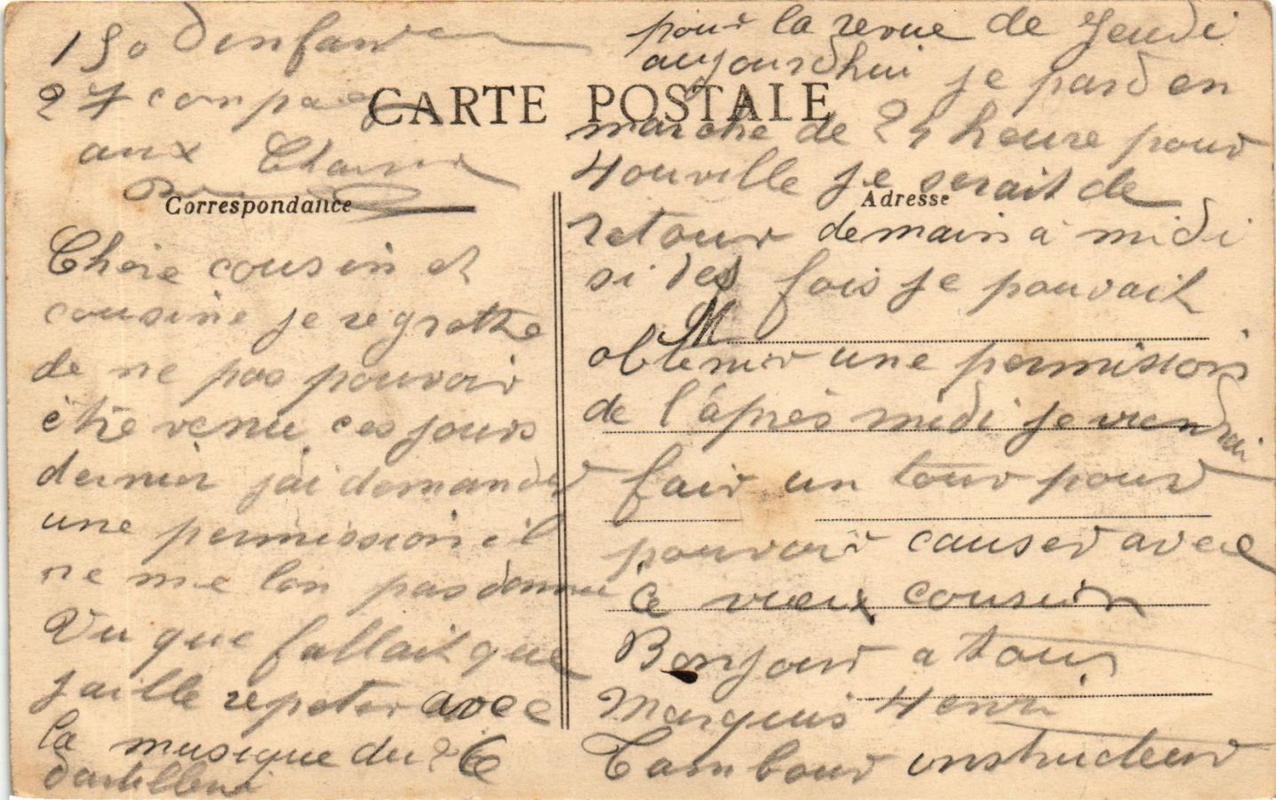 150 dinfan
27 compag
aux
CARTE POSTALE
Correspondance
Adresse
Chère cousin et
cousine je regrette
de ne pas pouvoir
être venu ces jours
dernier jai demander
une permission il
ne me lon pas donnu
Vu que fallait que
jaille repeter avec
la musique du 26
dartillerie
pour la revue de Jeudi
aujourdhui je pard en
marche de 24 heure pour
Houville je serait de
retour demain à midi
si des fois je pouvait
M
obtenir une permission
de l'après midi je viendrai
fair un tour pour
pouvoir causer avec
Ce vieux cousin
Bonjour a tous
Marquis Henri
Tambour instructeur